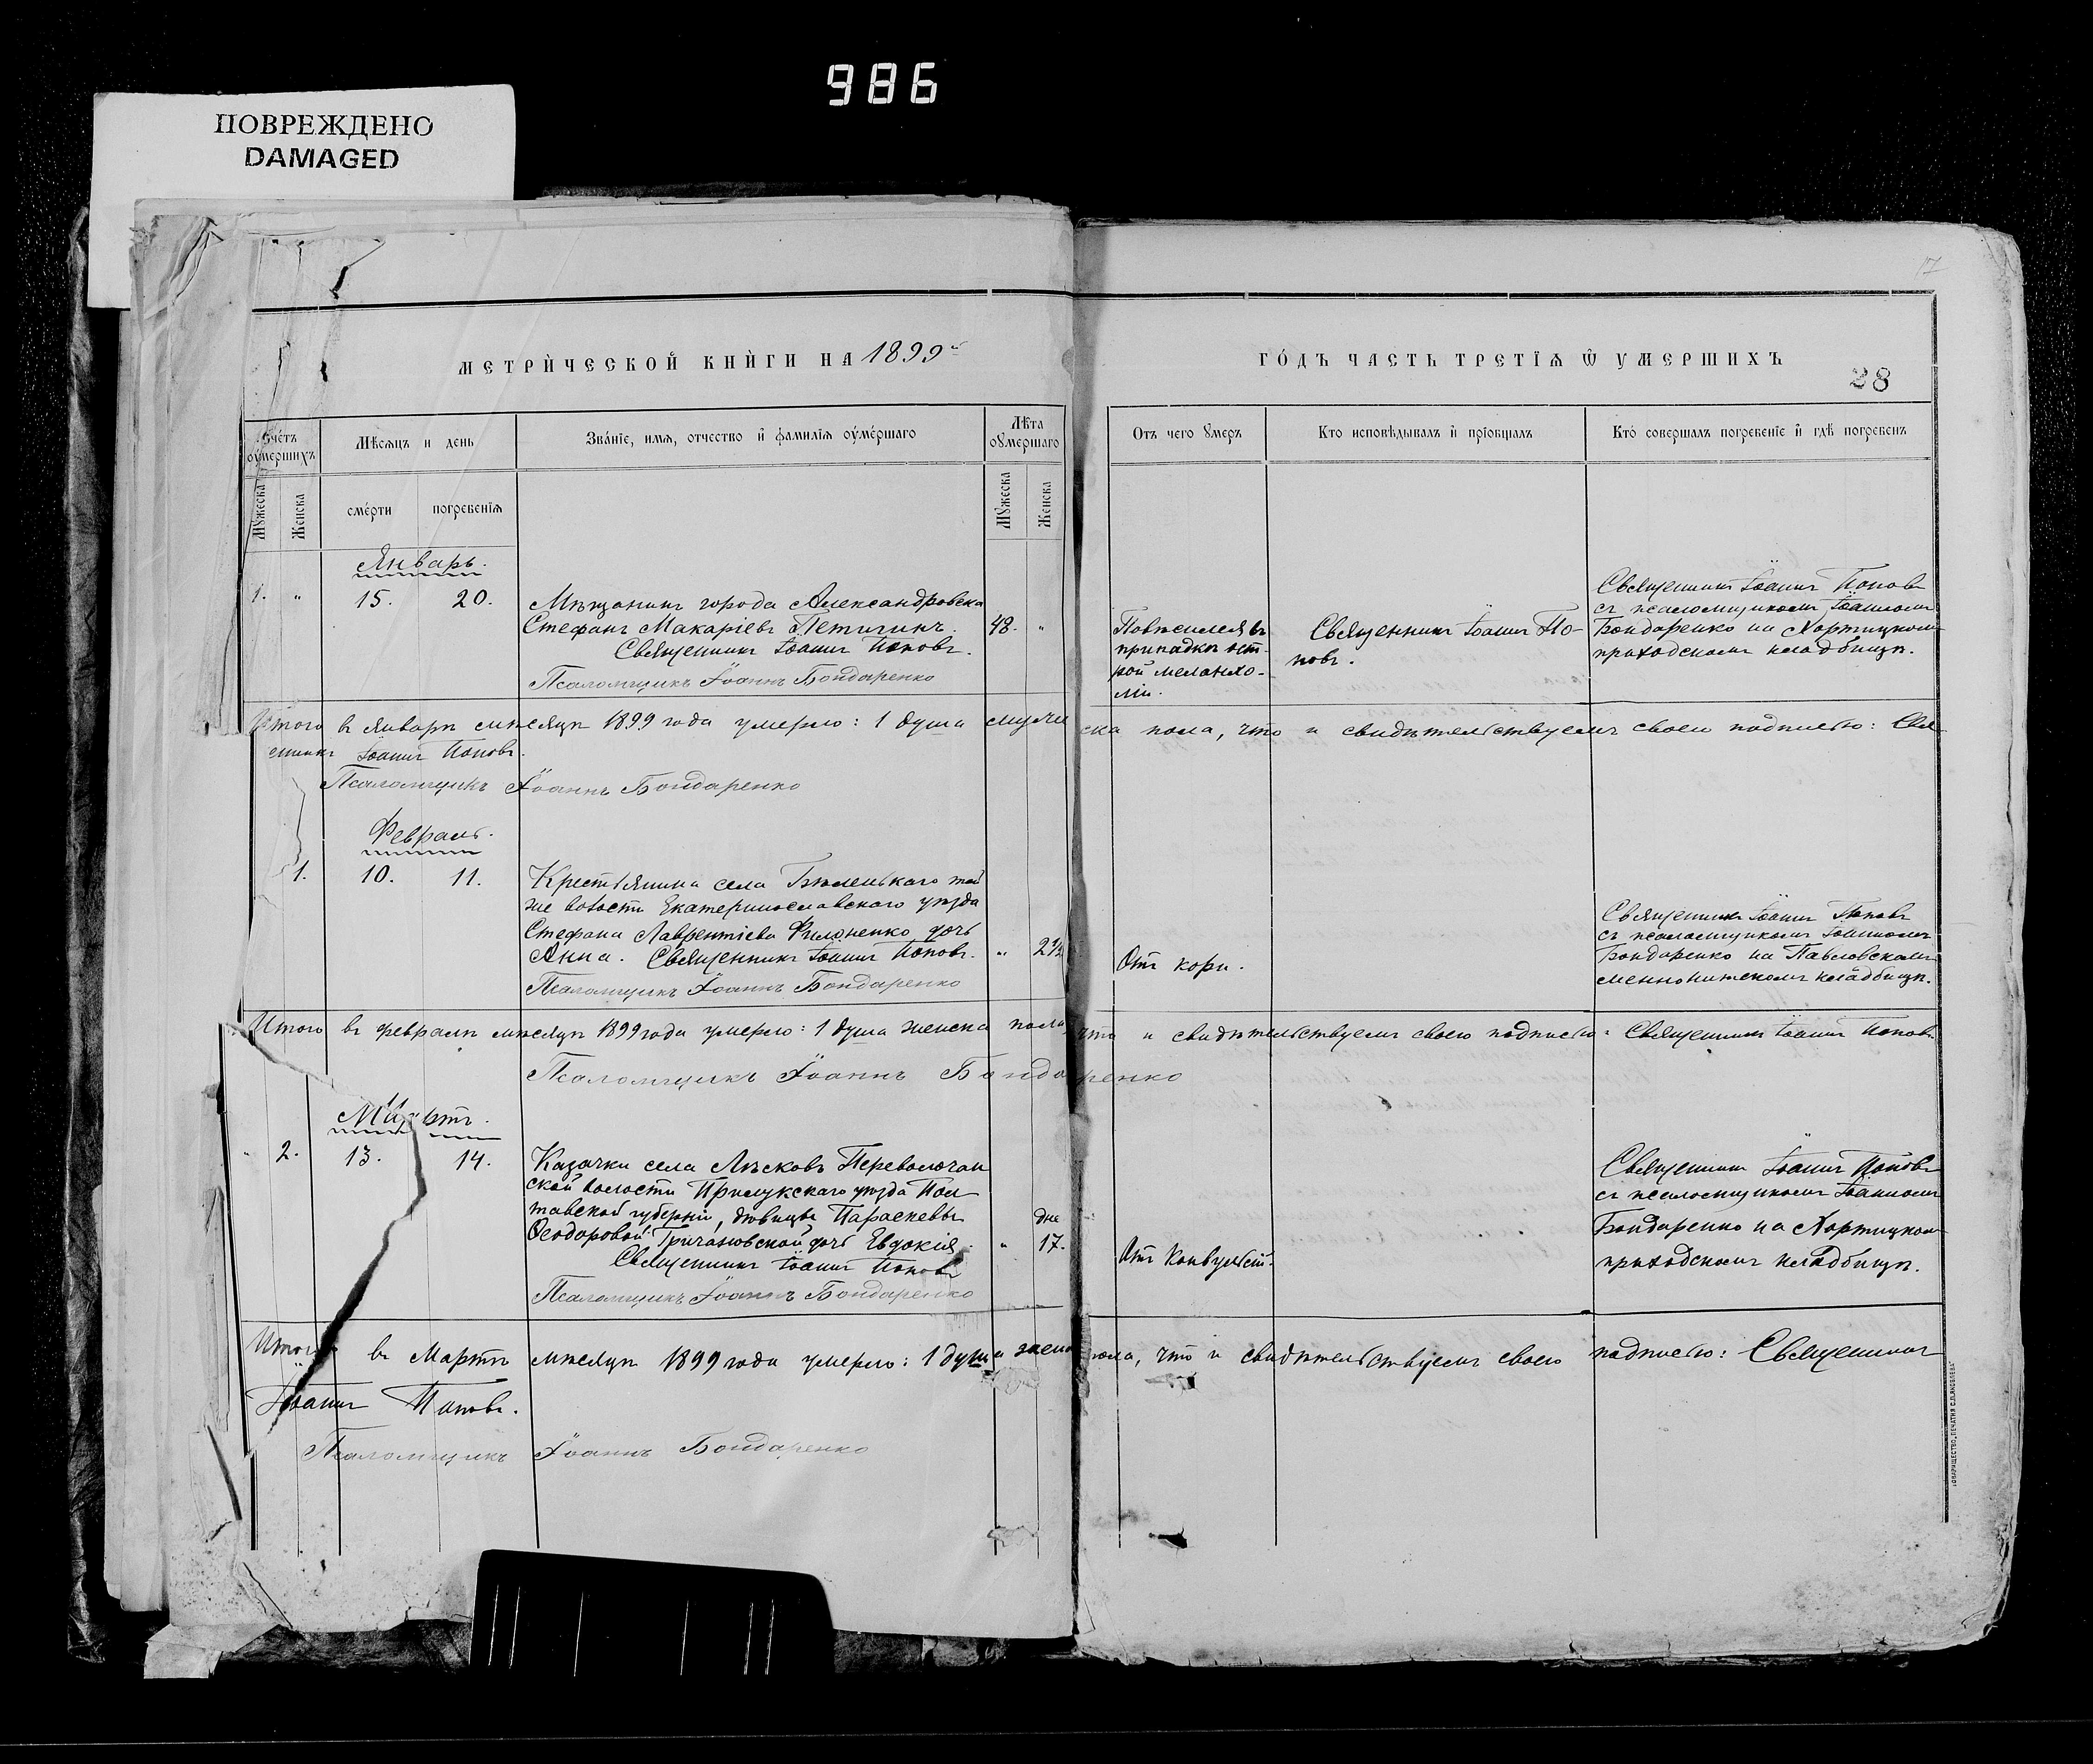 986
ПОВРЕЖДЕНО
DAMAGED
17
МЕТРИЧЕСКОЙ КНИГИ НА 1899й
ГОДЪ ЧАСТЬ ТРЕТІѦ Ѿ УМЕРШИХЪ
28
Счетъ оумершихъ
Мѣсѧцъ и день
Званїе, имѧ, отчество и фамилїѧ оумершаго
Лѣта оумершаго
Отъ чего умеръ
Кто исповѣдывалъ и прїобщалъ
Кто совершалъ погребенїе и гдѣ погребенъ
Мужеска
Женска
смерти
погребенїѧ
Мужеска
Женска
Январь.
1. " 15. 20.
Мѣщанинъ города Александровска
Стефанъ Макаріевъ
48. "
Священникъ Іоаннъ Поповъ.
Псаломщикъ Іоаннъ Бондаренко
Повѣсился въ
припадкѣ ост-
рой меланхо-
ліи.
Священникъ Іоаннъ По-
повъ.
Священникъ Іоаннъ Поповъ
съ псаломщикомъ Іоанномъ
Бондаренко на Хортицкомъ
приходскомъ кладбищѣ.
Итого въ Январѣ мѣсяцѣ 1899 года умерло: 1 душа мужеска пола, что и свидѣтельствуемъ своею подписью: Свя-
щенникъ Іоаннъ Поповъ.
Псаломщикъ Іоаннъ Бондаренко
Февраль.
1. 10. 11.
Крестьянина села Бѣленькаго той
же волости Екатеринославскаго уѣзда
Стефана Лаврентіева Филоненко дочь
Анна. Священникъ Іоаннъ Поповъ.
" 2½
Псаломщикъ Іоаннъ Бондаренко
Отъ кори.
Священникъ Іоаннъ Поповъ
съ псаломщикомъ Іоанномъ
Бондаренко на Павловскомъ
меннонитскомъ кладбищѣ.
Итого въ февралѣ мѣсяцѣ 1899 года умерло: 1 душа женска пола, что и свидѣтельствуемъ своею подписью: Священникъ Іоаннъ Поповъ.
Псаломщикъ Іоаннъ Бондаренко
Мартъ.
" 2. 13. 14.
Казачки села Лѣсковъ Переволочан
ской волости Прилукскаго уѣзда Пол
тавской губерніи, дѣвицы Параскевы
Ѳеодоровой дочь Евдокія.
дне
" 17.
Священникъ Іоаннъ Поповъ
Псаломщикъ Іоаннъ Бондаренко
Отъ конвульсій.
Священникъ Іоаннъ Поповъ
съ псаломщикомъ Іоанномъ
Бондаренко на Хортицкомъ
приходскомъ кладбищѣ.
Итого въ Мартѣ мѣсяцѣ 1899 года умерло: 1 душа женс пола, что и свидѣтельствуемъ своею подписью: Священникъ
Іоаннъ Поповъ.
Псаломщикъ Іоаннъ Бондаренко